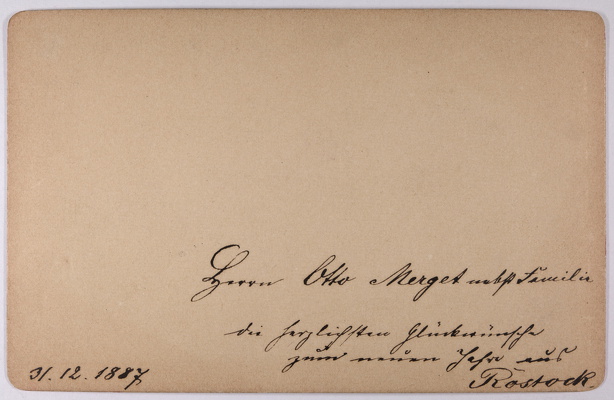 Herrn Otto Merget nebst Familie
die herzlichsten Glückwünsche
zum neuen Jahre aus
Rostock.
31.12.1887